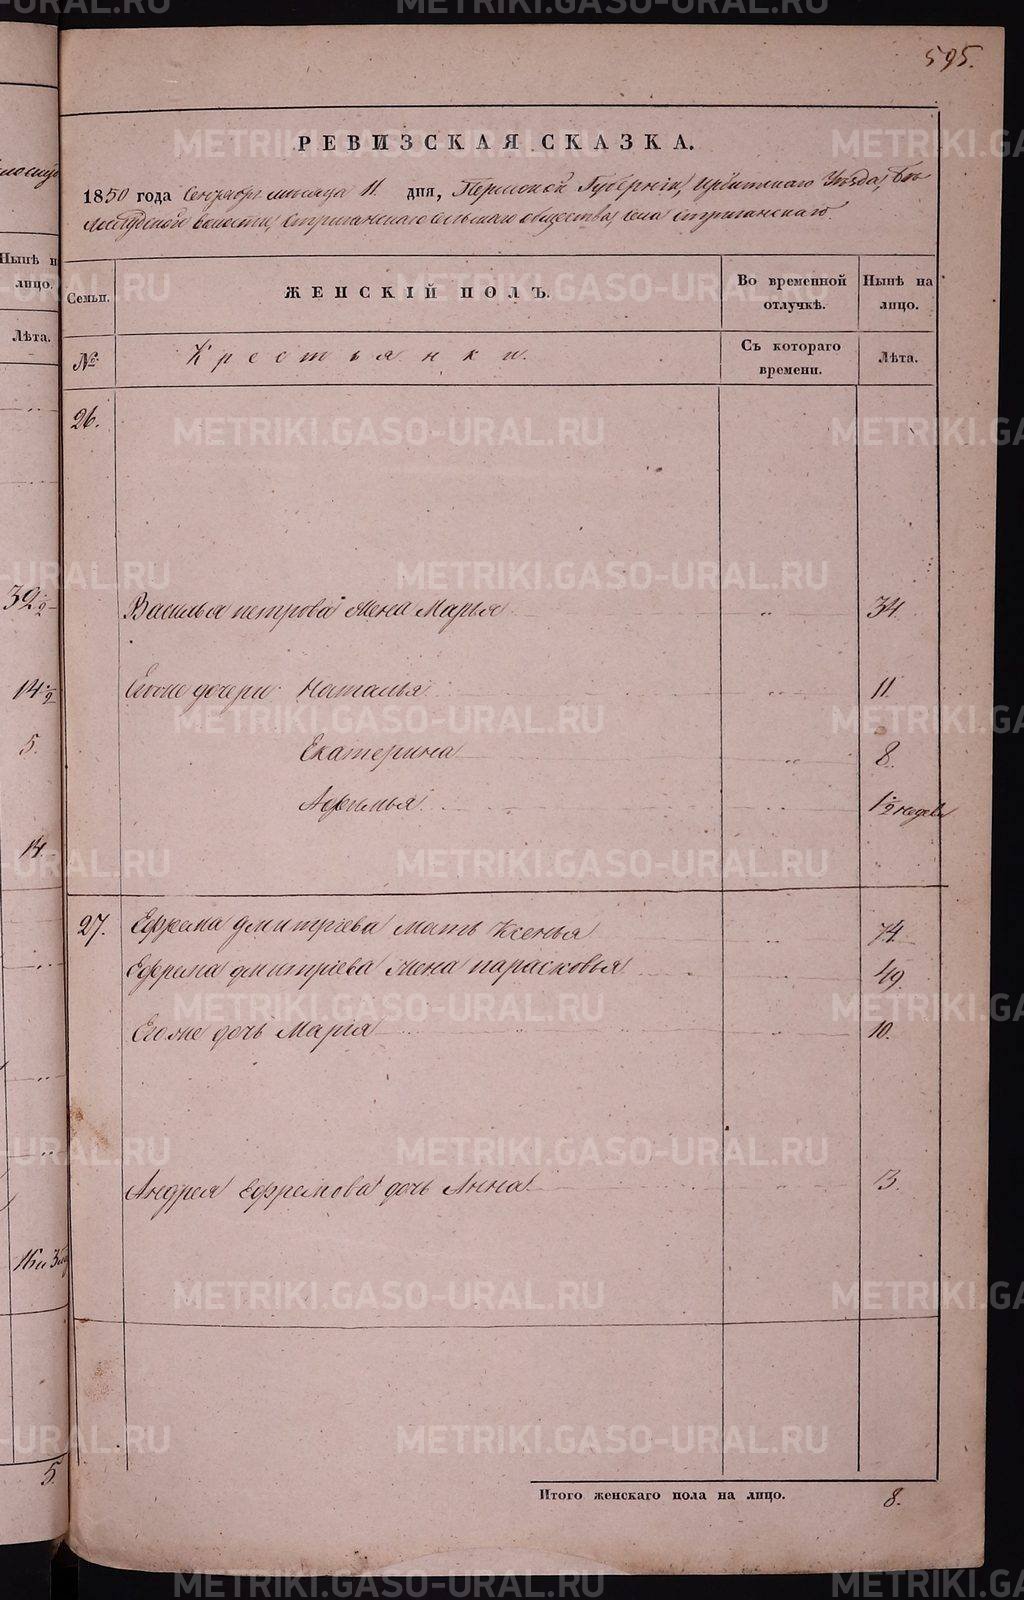 595.
РЕВИЗСКАЯ СКАЗКА.
1850 года Сентября месяца 11 дня, Пермской Губернiи, Ирбитскаго Уѣзда, Бѣ-
лослудской волости, Стриганскаго сельскаго общества, села Стриганскаго.
Семьи. ЖЕНСКІЙ ПОЛЪ. Во временной отлучкѣ. Нынѣ на лицо.
№ Крестьянки. Съ котораго времени. Лѣта.
26.
Василья петрова жена Марья " 34.
Егоже дочери Наталья " 11.
Екатерина " 8.
Афимья " 1/2 недели
27. Ефрема дмитрiева мать Ксенья " 74.
Ефрема дмитрiева жена парасковья " 49.
Егоже дочь Марiя " 10.
Андрея Ефремова дочь Анна " 3.
Итого женскаго пола на лицо. 8.
Нынѣ н
лицо.
Лѣта.
39 1/2
14 1/2
5.
14.
5.
METRIKI.GASO-URAL.RU